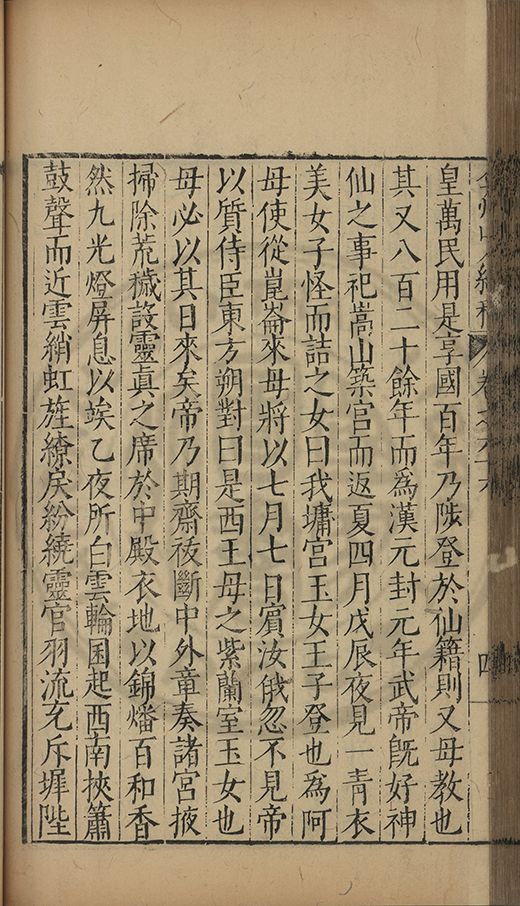 皇萬民用是享國百年乃陟登於仙籍則又母教也
其又八百二十餘年而爲漢元封元年武帝旣好神
仙之事祀嵩山築宮而返夏四月戊辰夜見一青衣
美女子怪而詰之女曰我墉宮玉女王子登也爲阿
母使從崑崙來母將以七月七日賓汝俄忽不見帝
以質侍臣東方朔對曰是西王母之紫蘭室玉女也
母必以其日來矣帝乃期齋祓斷中外童奏諸宮掖
掃除荒穢設靈眞之席於中殿衣地以錦燔百和香
然九光燈屏息以竢乙夜所白雲輪囷起西南挾簫
鼓聲而近雲綃虹旌繚戾紛繞靈官羽流充斥墀陛